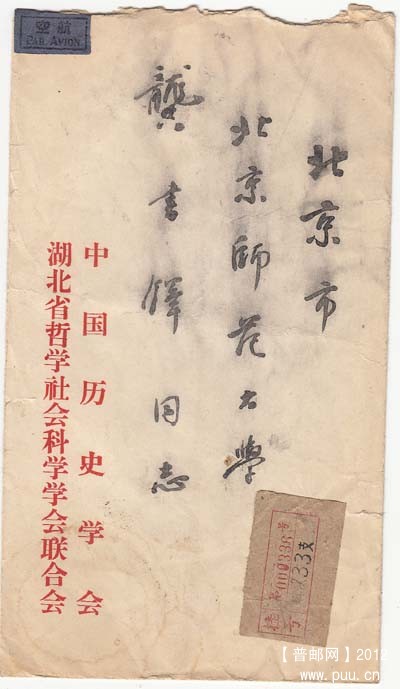 航空
PAR AVION
北京市
北京師范大學
龔書鐸同志
中国历史学会
湖北省哲学社会科学学会联合会
33支
【普邮网】2012
www.puu.cn